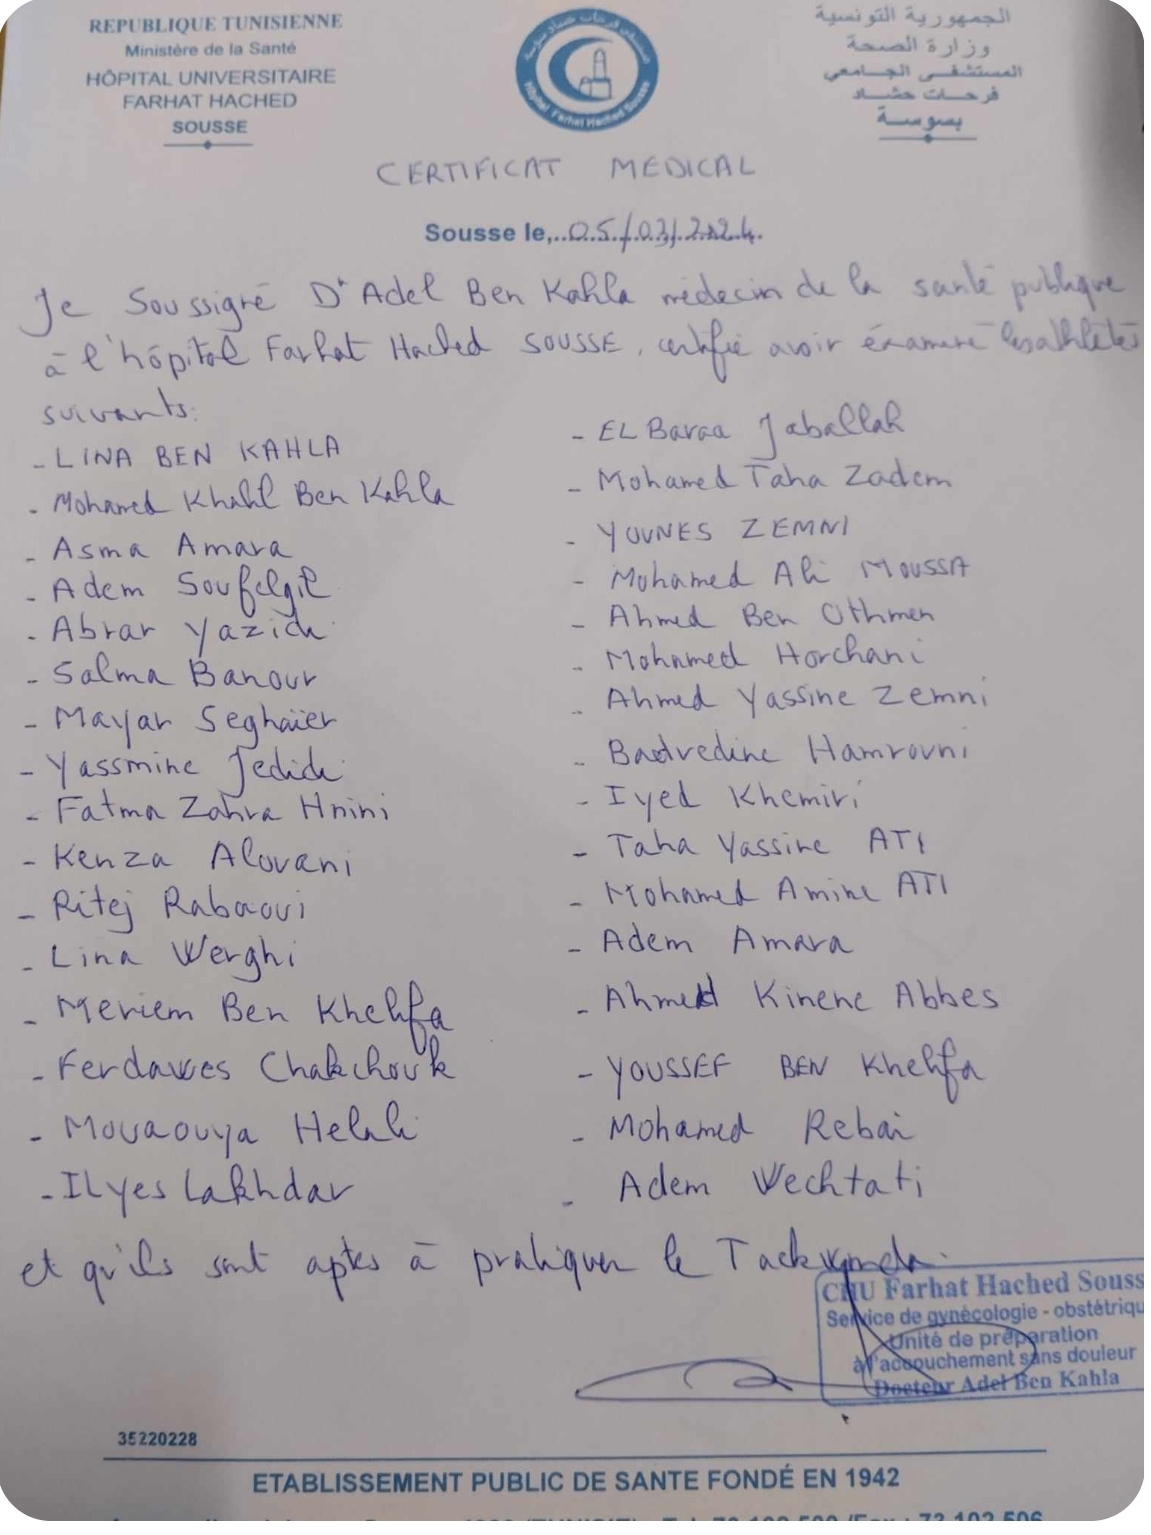 REPUBLIQUE TUNISIENNE
Ministère de la Santé
HÔPITAL UNIVERSITAIRE
FARHAT HACHED
SOUSSE
الجمهورية التونسية
وزارة الصحة
المستشفى الجامعي
فرحات حشاد
بسوسة
Hôpital Farhat Hached Sousse
CERTIFICAT MEDICAL
Sousse le,..05/03/2024.
Je Soussigné Dr Adel Ben Kahla médecin de la santé publique
à l'hôpital Farhat Hached SOUSSE, certifie avoir éxaminé les athlètes
suivants:
- LINA BEN KAHLA
- Mohamed Khalil Ben Kahla
- Asma Amara
- Adem Soufelgil
- Abrar Yazidi
- Salma Banour
- Mayar Seghaïer
- Yassmine Jedidi
- Fatma Zahra Hnini
- Kenza Alouani
- Ritej Rabaoui
- Lina Werghi
- Meriem Ben Khelifa
- Ferdawes Chakchouk
- Mouaouya Helali
- ILyes Lakhdar
- EL Baraa Jaballah
- Mohamed Taha Zadem
- YOUNES ZEMNI
- Mohamed Ali MOUSSA
- Ahmed Ben Othmen
- Mohamed Horchani
- Ahmed Yassine Zemni
- Badredine Hamrouni
- Iyed Khemiri
- Taha Yassine ATI
- Mohamed Amine ATI
- Adem Amara
- Ahmed Kinene Abbes
- YOUSSEF BEN Khelifa
- Mohamed Rebai
- Adem Wechtati
et qu'ils sont aptes à pratiquer le Taekwondo.
CHU Farhat Hached Souss
Service de gynécologie - obstétriqu
Unité de préparation
à l'accouchement sans douleur
Docteur Adel Ben Kahla
35220228
ETABLISSEMENT PUBLIC DE SANTE FONDÉ EN 1942